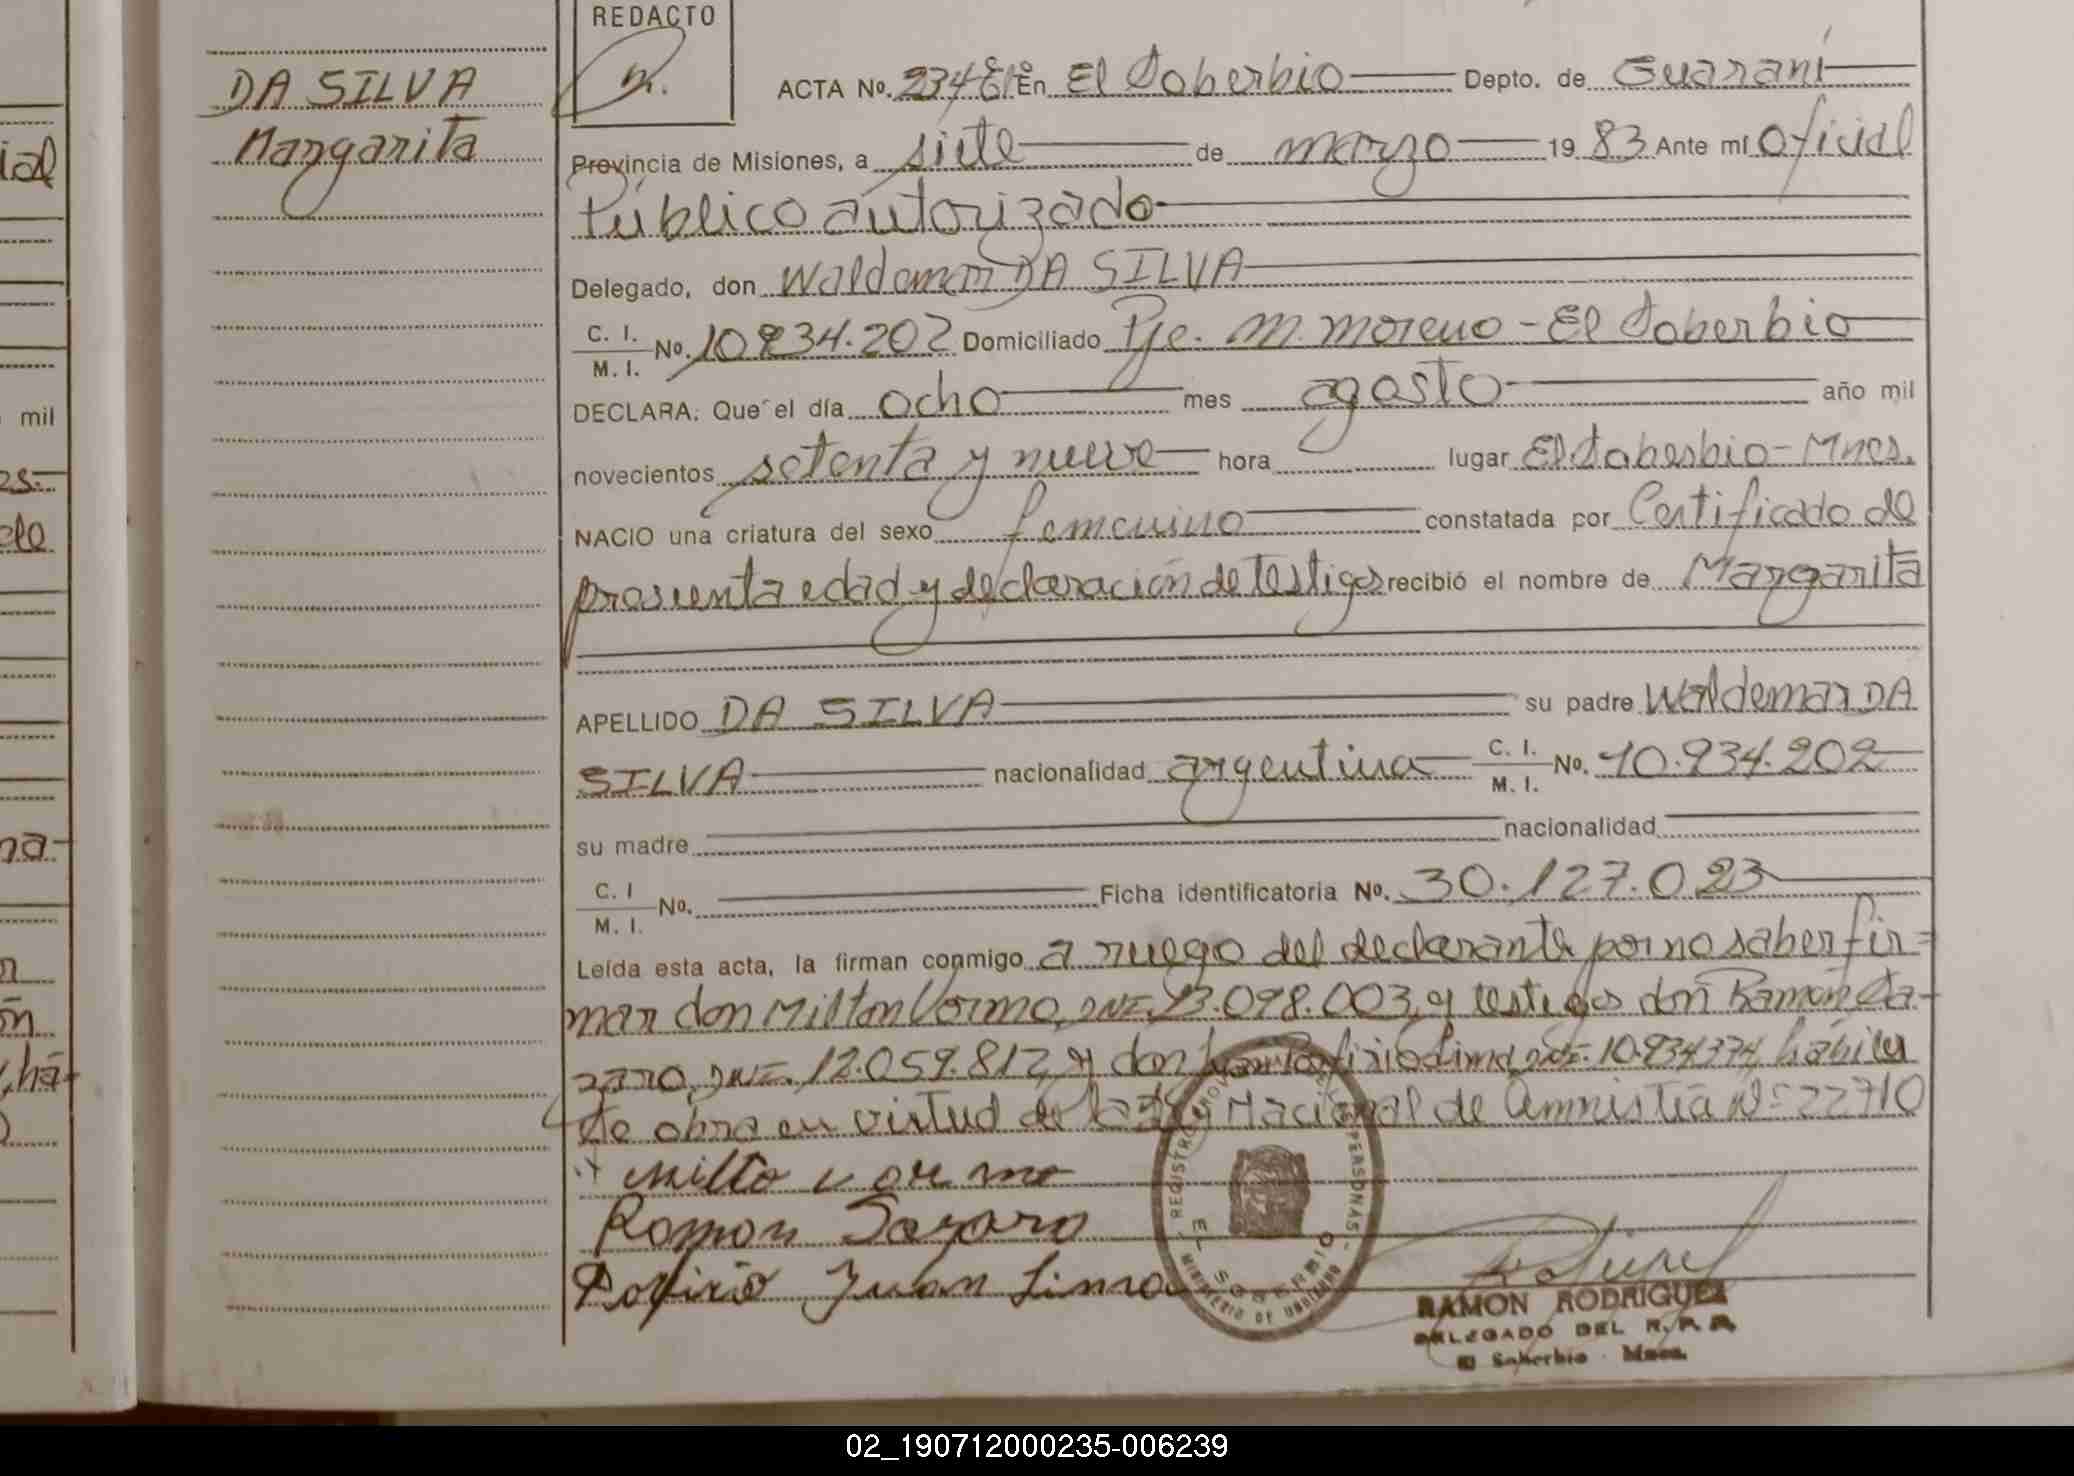 REDACTO
DA SILVA
Margarita
ACTA No. 234 En El Soberbio Depto. de Guaraní
Provincia de Misiones, a siete de marzo 19 83 Ante mí Oficial
Público autorizado
Delegado, don Waldemar DA SILVA
C. I.
M. I. No. 10.934.202 Domiciliado Pje. M. Moreno - El Soberbio
DECLARA: Que el día ocho mes agosto año mil
novecientos setenta y nueve hora lugar El Soberbio - Mnes.
NACIO una criatura del sexo femenino constatada por Certificado de
presunta edad y declaración de testigos recibió el nombre de Margarita
APELLIDO DA SILVA su padre Waldemar DA
SILVA nacionalidad argentina C. I.
M. I. No. 10.934.202
su madre nacionalidad
C. I
M. I. No. Ficha identificatoria No. 30.127.023
Leída esta acta, la firman conmigo a ruego del declarante por no saber fir=
mar don Milton Vormo, DNI= 23.098.003, y testigos don Ramón
DNI=. 12.059.812, y don Juan Porfirio Lima DNI=. 10.934374, hábiles
Se obra en virtud de la Ley Nacional de Amnistía Nº 22710
Milto vormo
Ramon
Porfirio Juan Lima
REGISTRO PROV. DE LAS PERSONAS
EL SOBERBIO
MINISTERIO DE GOBIERNO
RAMON RODRIGUEZ
DELEGADO DEL R. P. P.
El Soberbio - Mnes.
mil
02_190712000235-006239